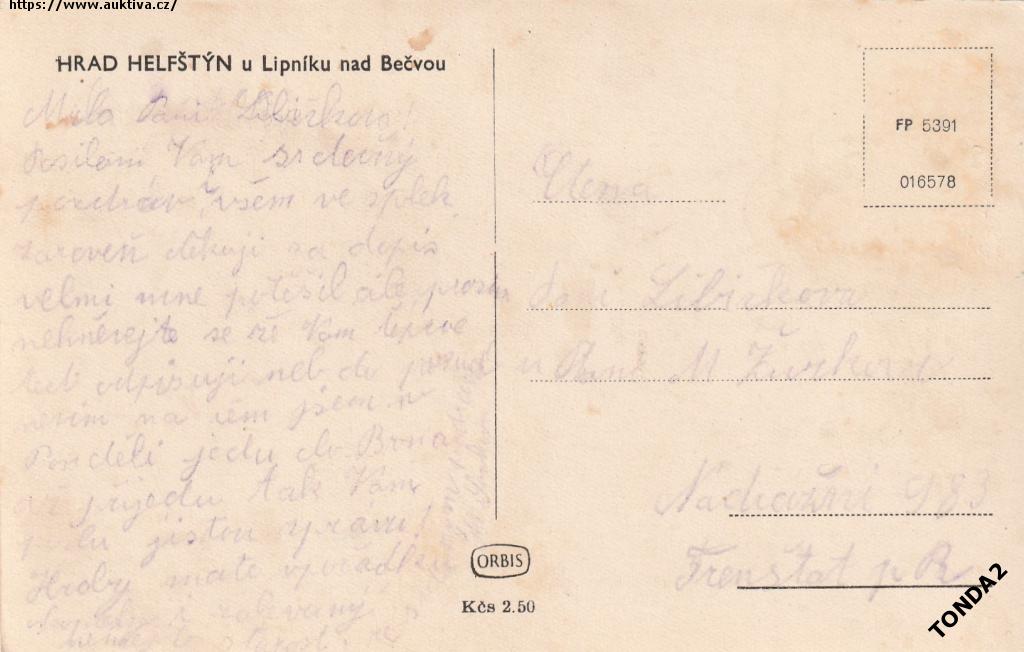 https://www.auktiva.cz/
HRAD HELFŠTÝN u Lipníku nad Bečvou
Milá Paní Libíčkova!
Posílám Vám srdečný
pozdrav všem ve splek
zároveň děkuji za dopis
velmi mne potěšil ale prosím
nehněvejte se že Vám teprve
teď odpisuji neb do
nevím na čem jsem v
Pondělí jedu do Brna
až přijedu tak Vám
pošlu jistou zprávu!
Hroby máte vpořádku
zalevaný
starost
FP 5391
016578
Ctěná
Paní Libíčkova
u Paní M Žurkova
Nádražní 983
Frenštát p R
ORBIS
Kčs 2.50
TONDA2